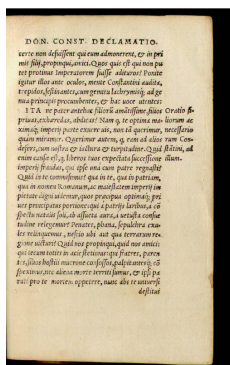 DON. CONST. DECLAMATIO.
certe non defuissent qui eum admonerent, & in pri
mis filij, propinqui, amici. Quos quis est qui non pu
tet protinus Imperatorem fuisse adituros? Ponite
igitur illos ante oculos, mente Constantini audita,
trepidos, festinantes, cum gemitu lachrymisq; ad ge
nua principis procumbentes, & hac voce utentes:
ITA ne pater antehac filiorū amātissime, filios
priuas, exhæredas, abdicas? Nam q, te optima ma
ximaq; imperij parte exuere uis, non tā querimur,
quàm miramur. Querimur autem, q, eam ad alios
defers, cum nostra & iactura & turpitudine. Quid
enim causæ est, q, liberos tuos expectata successione
imperij fraudas, qui ipse una cum patre regnasti?
Quid in te commisimus? qua in te, qua in patriam,
qua in nomen Romanum, ac maiestatem imperij im
pietate digni uidemur, quos præcipua optimaq; pri
ues principatus portione: qui à patrijs laribus, à cō
spectu natalis soli, ab assueta aura, à uetusta consue
tudine relegemur? Penates, phana, sepulchra exu-
les relinquemus, nescio ubi aut qua terrarum re-
gione uicturi? Quid nos propinqui, quid nos amici:
qui tecum toties in acie stetimus: qui fratres, paren
tes, filios hostili mucrone confossos, palpitantesq; cō
speximus, nec aliena morte territi sumus, & ipsi pa
rati pro te mortem oppetere, nunc abs te uniuersi
destitui
Oratio fi-
liorum ac
necessario
rum Con-
stātini, ad
illum.